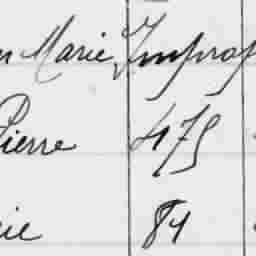 Marie Improp
Pierre 475
81